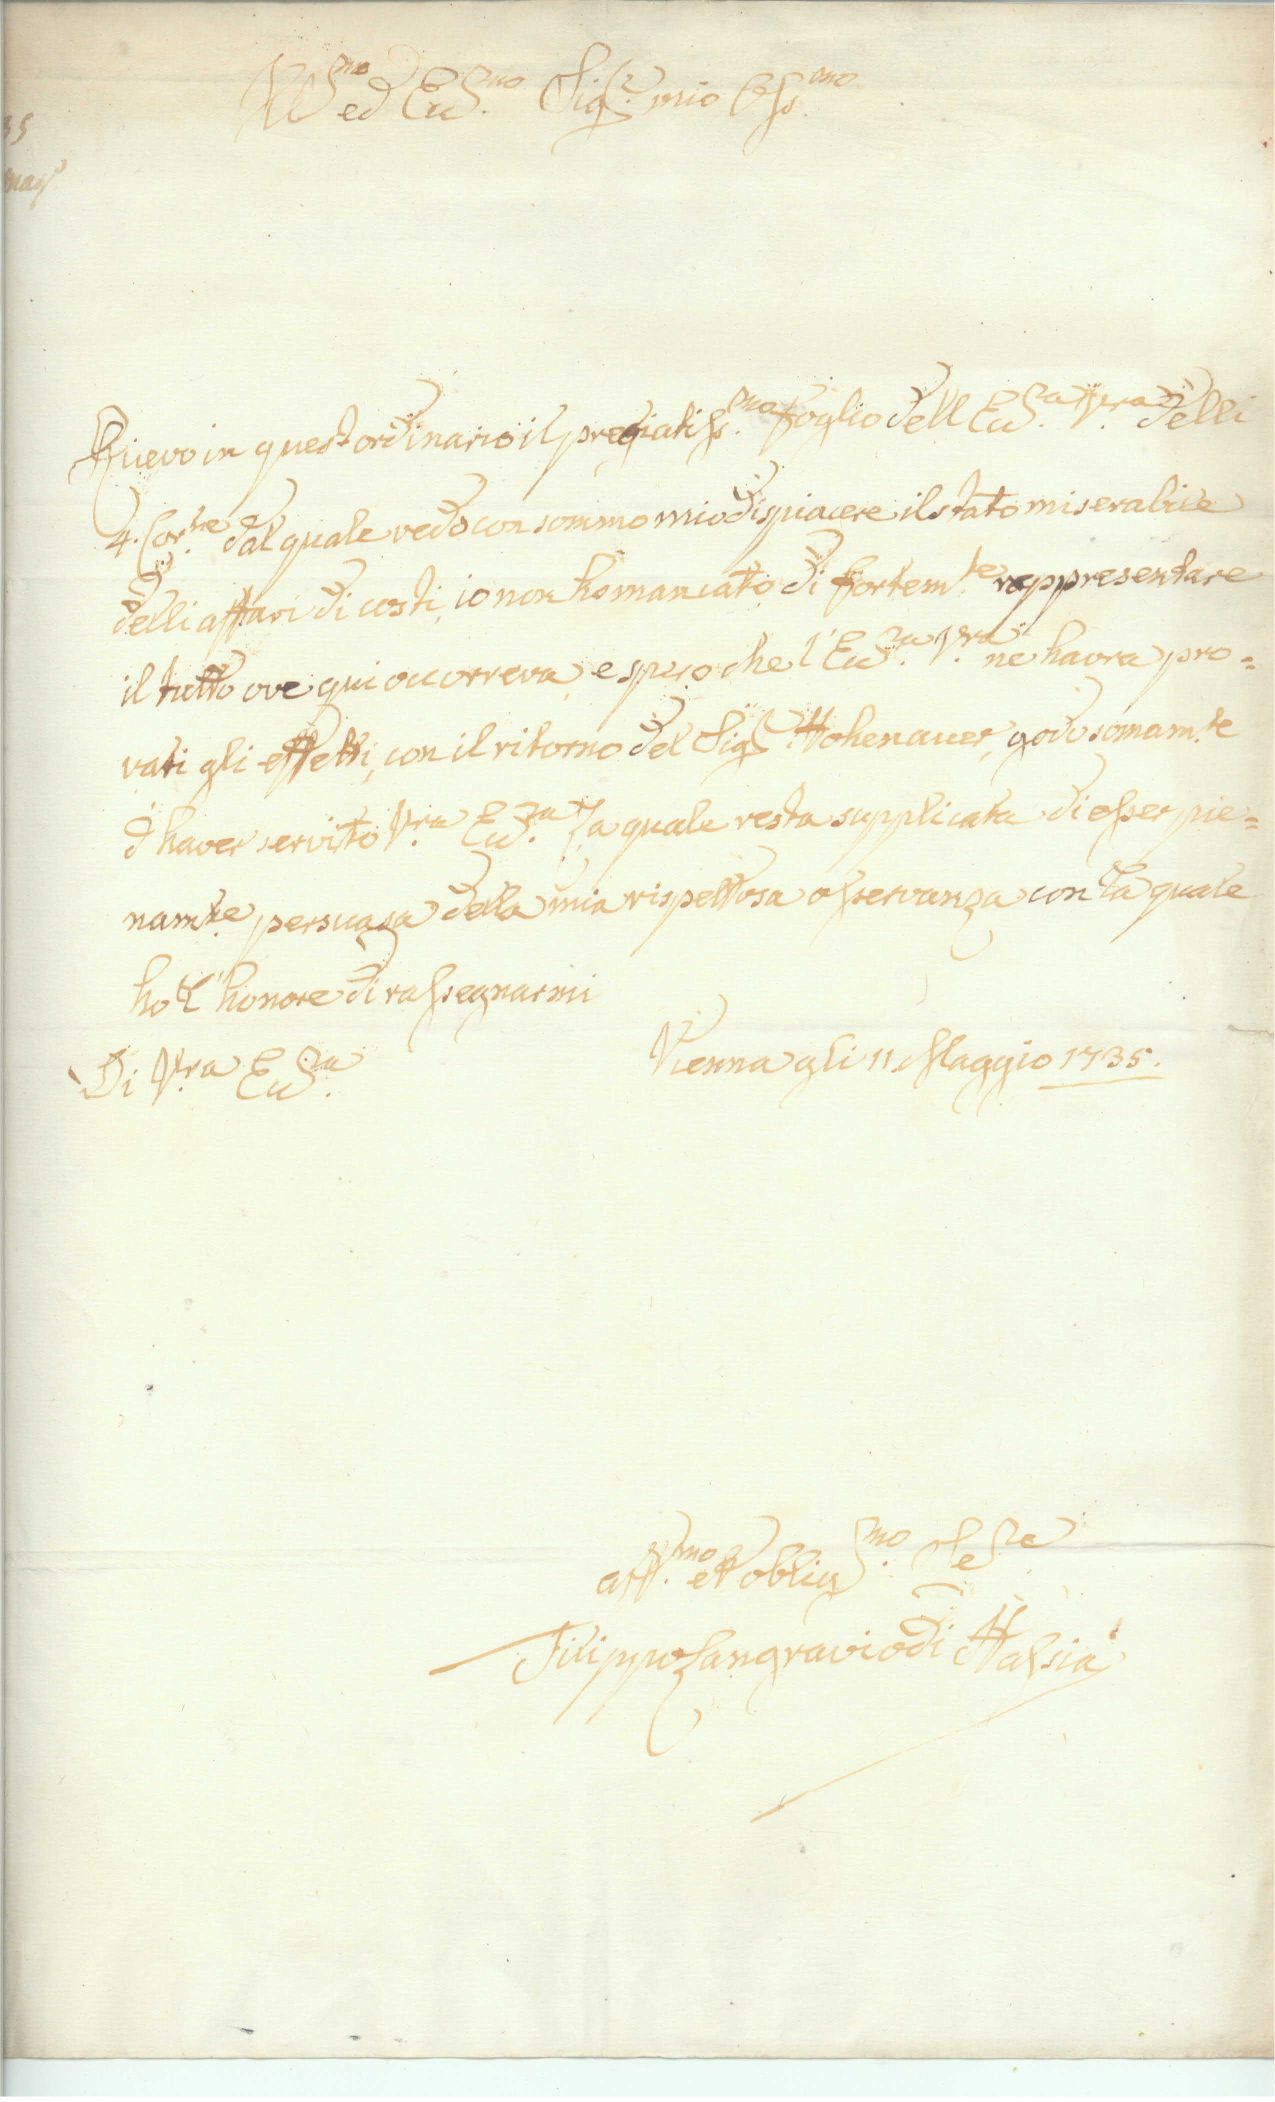 Ill.mo ed Ecc.mo Sig.r mio Oss.mo
35
mag
Ricevo in quest ordinario il pregiatiss.mo foglio dell Ecc.a V.ra delli
4. Cor.te dal quale vedo con sommo mio dispiacere il stato miserabile
delli affari di costi, io non ho mancato di fortem.te rappresentare
il tutto ove qui occorreva, e spero che l'Ecc.za V.ra ne havra pro=
vati gli effetti, con il ritorno del Sig.r Hohenauer, godo somam.te
d'haver servito V.ra Ecc.za la quale resta supplicata di esser pie=
nam.te persuasa della mia rispettosa osservanza con la quale
ho l'honore di rassegnarmi
Di V.ra Ecc.za
Vienna gli 11 Maggio 1735.
aff.mo et oblig.mo Se.re
Filippo Langravio di Hassia